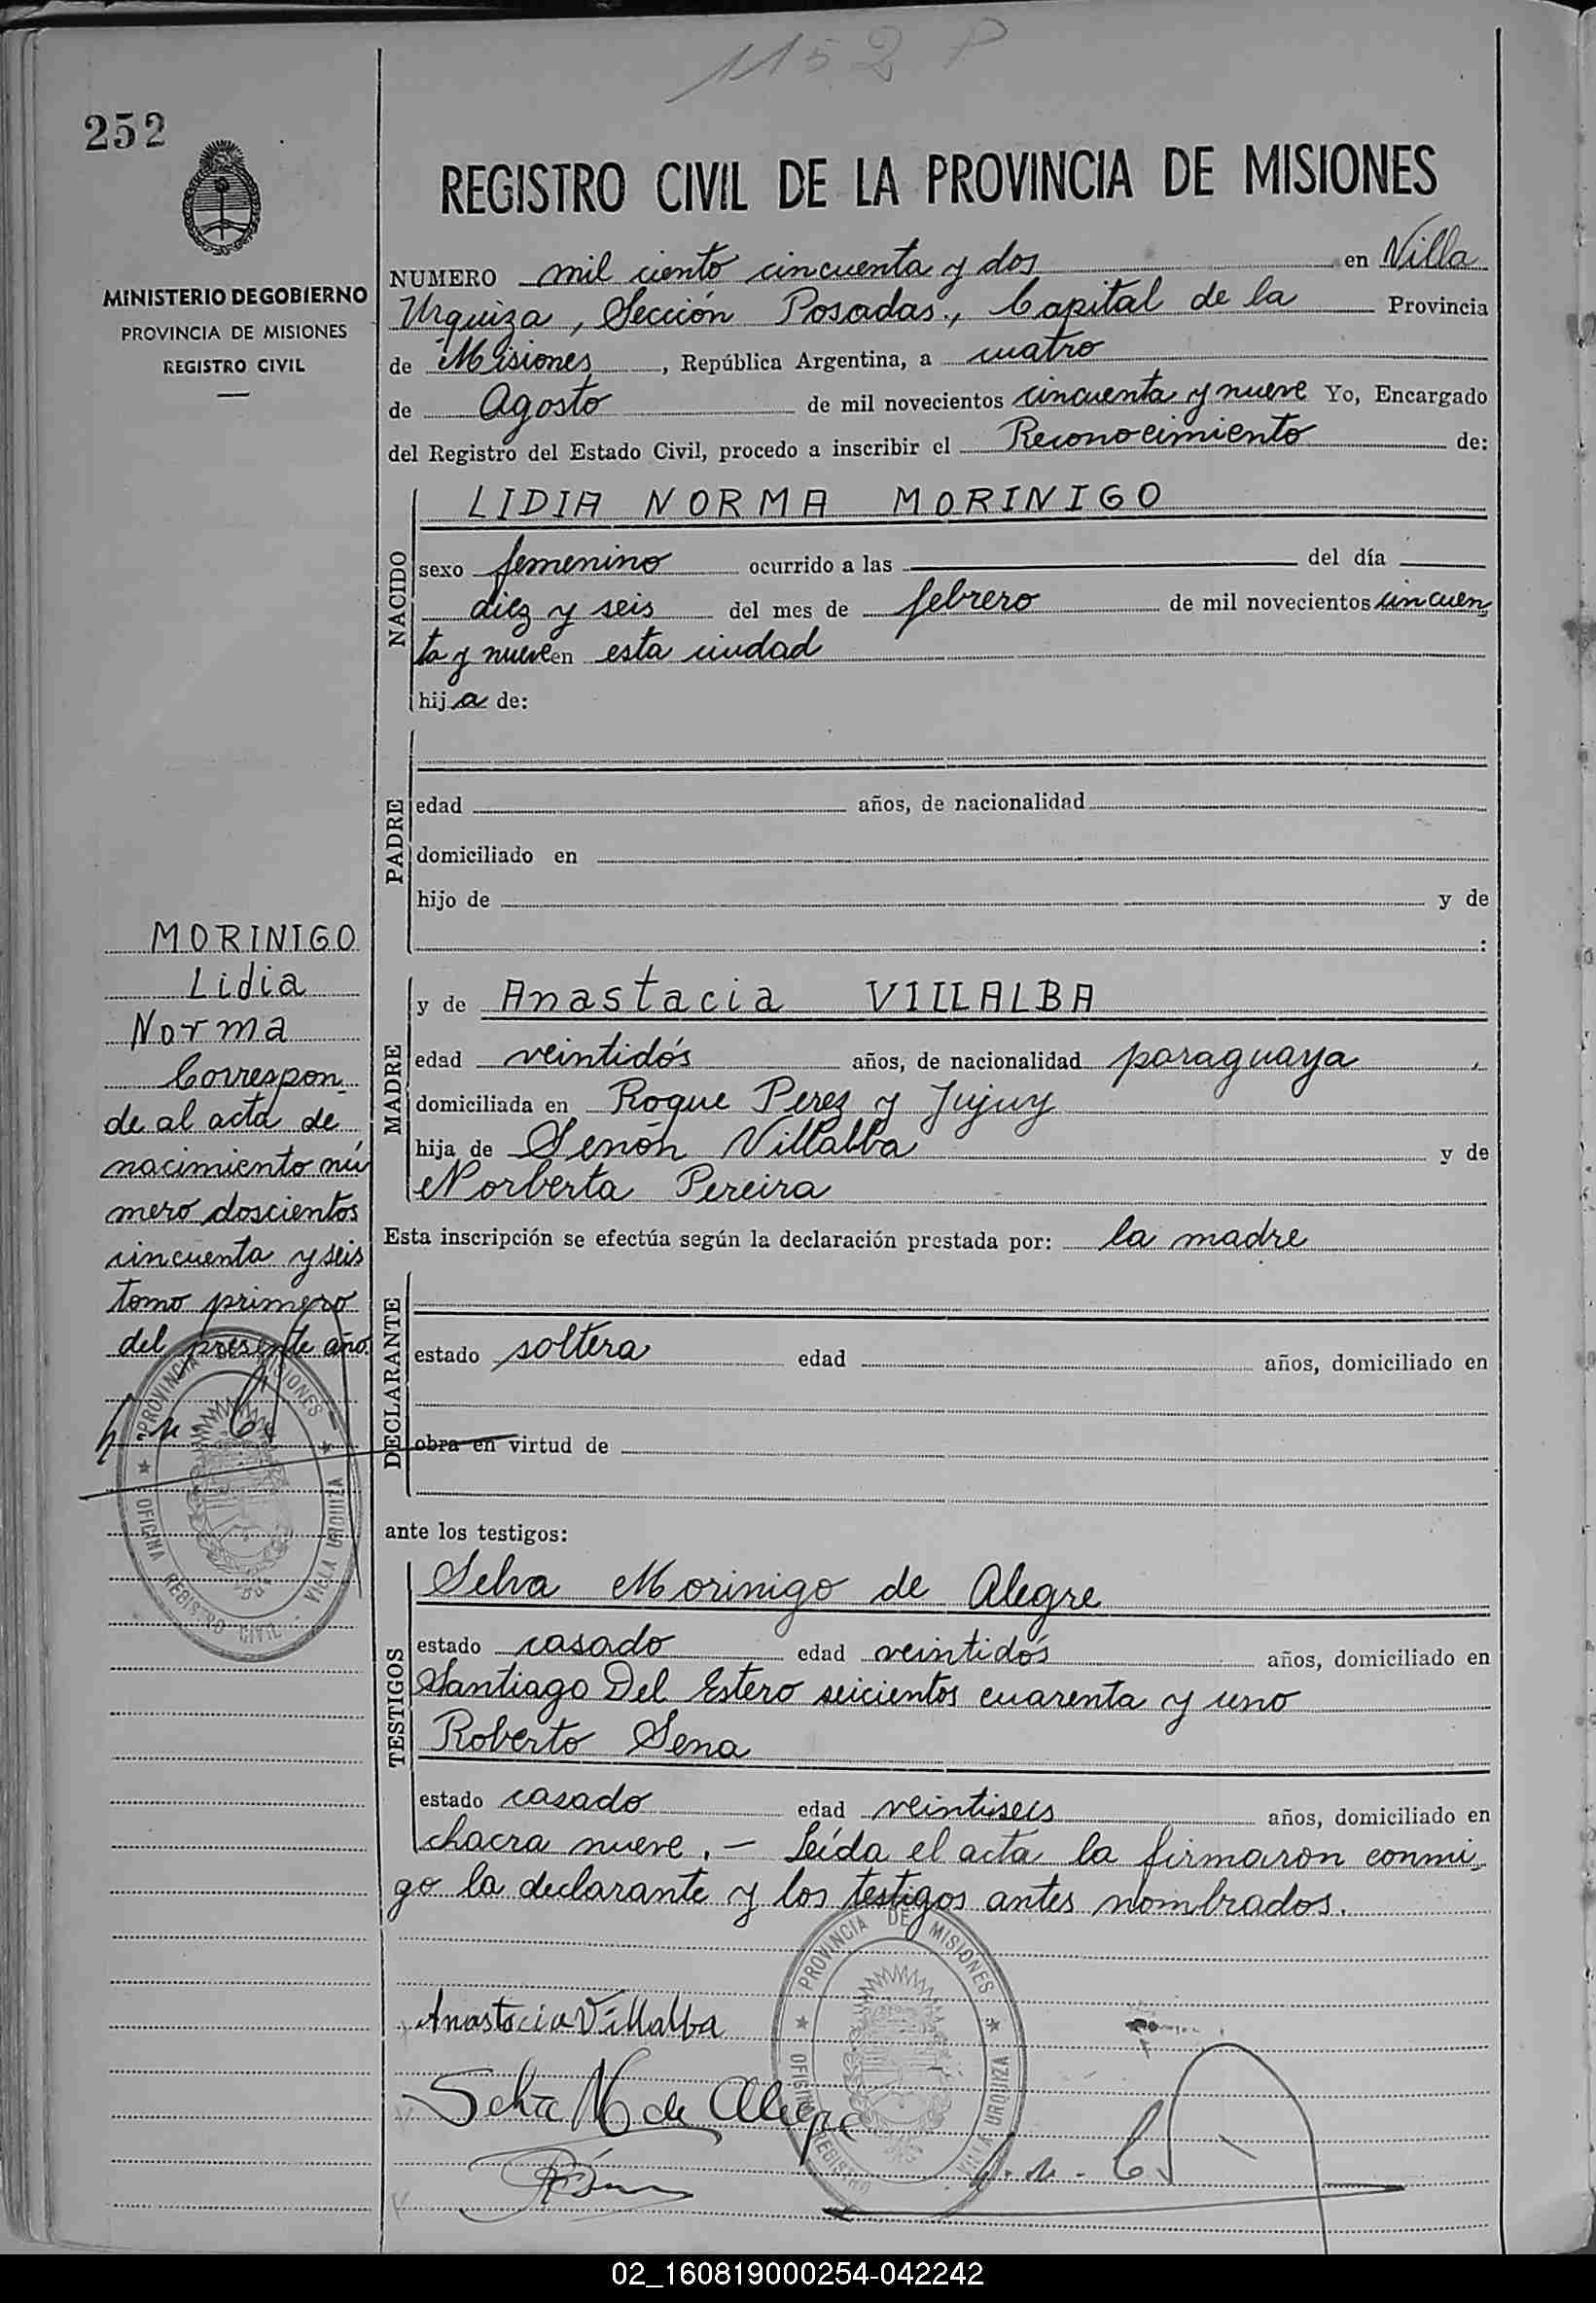 1152 P
252
REGISTRO CIVIL DE LA PROVINCIA DE MISIONES
MINISTERIO DE GOBIERNO
PROVINCIA DE MISIONES
REGISTRO CIVIL
NUMERO mil ciento cincuenta y dos en Villa
Urquiza, Sección Posadas., Capital de la Provincia
de Misiones, República Argentina, a cuatro
de Agosto de mil novecientos cincuenta y nueve Yo, Encargado
del Registro del Estado Civil, procedo a inscribir el Reconocimiento de:
NACIDO
LIDIA NORMA MORINIGO
sexo femenino ocurrido a las del día
diez y seis del mes de febrero de mil novecientos cincuen
ta y nueve en esta ciudad
hij a de:
PADRE
edad años, de nacionalidad
domiciliado en
hijo de y de
:
MORINIGO
Lidia
Norma
Correspon
de al acta de
nacimiento nú
mero doscientos
cincuenta y seis
tomo primero
del presente año.
PROVINCIA DE MISIONES
OFICINA REGISTRO CIVIL VILLA URQUIZA
MADRE
y de Anastacia VILLALBA
edad veintidós años, de nacionalidad paraguaya,
domiciliada en Roque Perez y Jujuy
hija de Senón Villalba y de
Norberta Pereira
Esta inscripción se efectúa según la declaración prestada por: la madre
DECLARANTE
estado soltera edad años, domiciliado en
obra en virtud de
ante los testigos:
TESTIGOS
Selva Morinigo de Alegre
estado casado edad veintidós años, domiciliado en
Santiago Del Estero seicientos cuarenta y uno
Roberto Sena
estado casado edad veintiseis años, domiciliado en
chacra nueve. - Leída el acta la firmaron conmi
go la declarante y los testigos antes nombrados.
PROVINCIA DE MISIONES
OFICINA REGISTRO VILLA URQUIZA
Anastacia Villalba
Selva M de Alegre
02_160819000254-042242